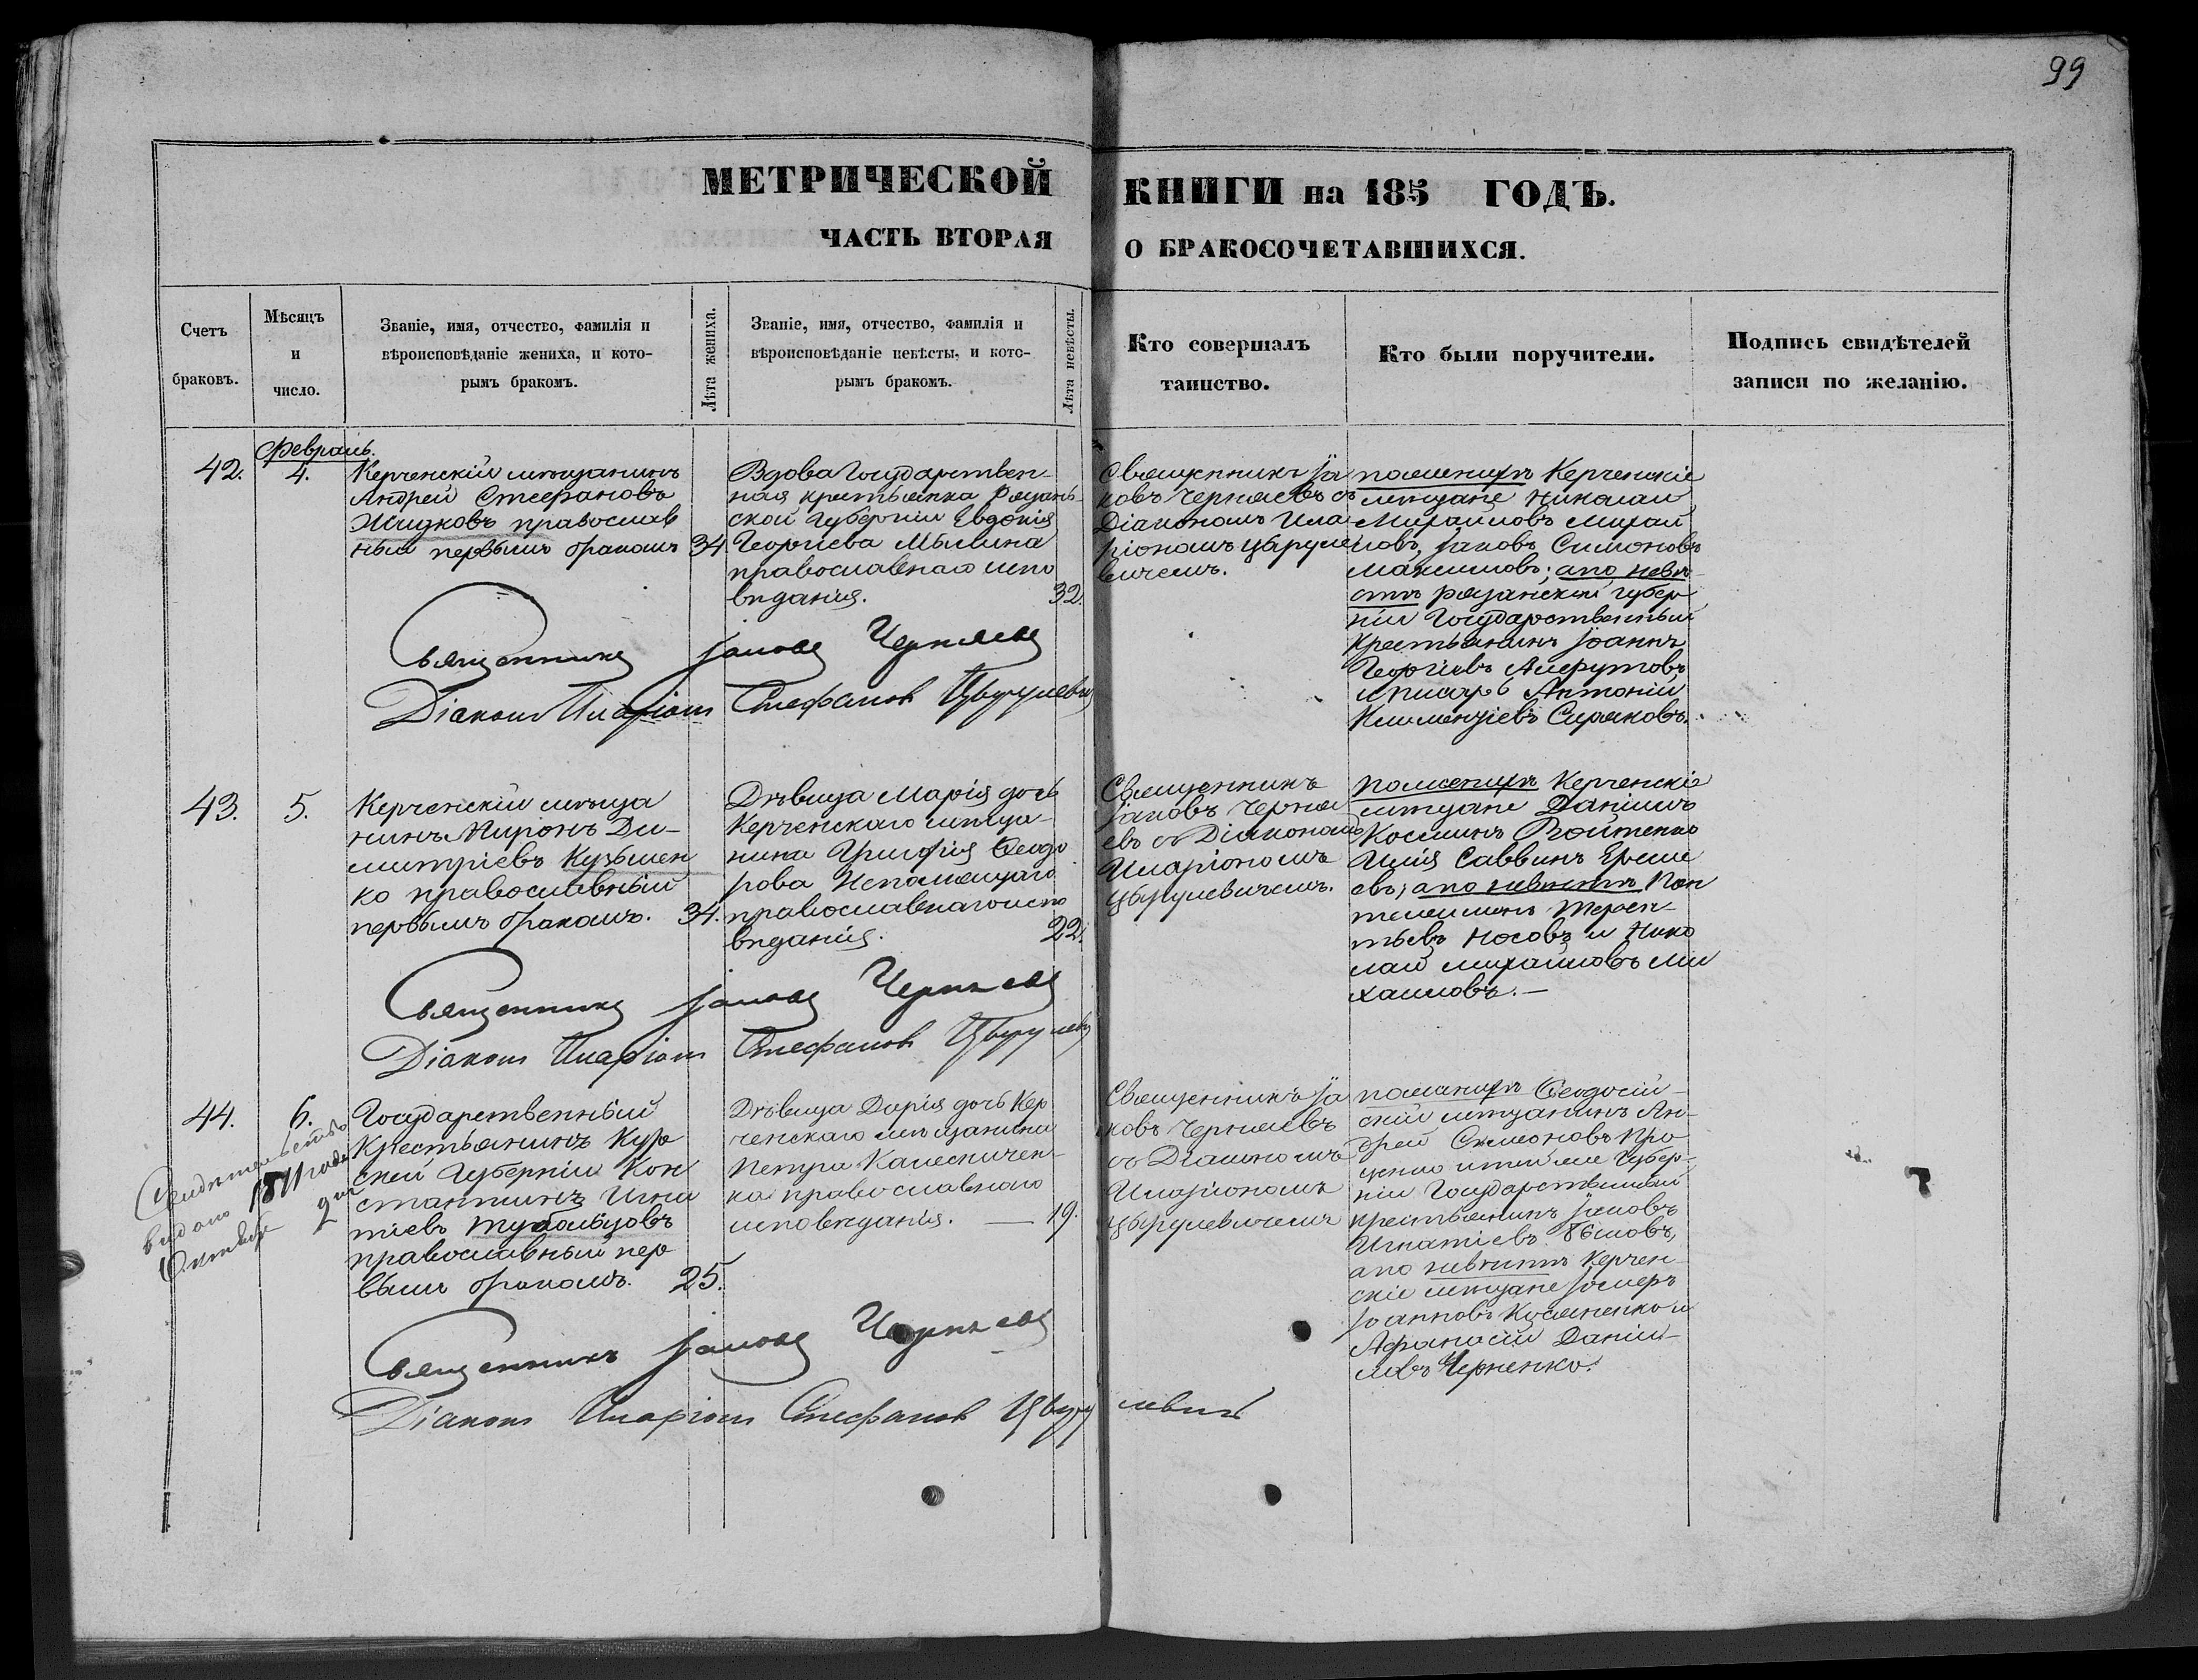 99
МЕТРИЧЕСКОЙ КНИГИ на 185 ГОДЪ.
ЧАСТЬ ВТОРАЯ О БРАКОСОЧЕТАВШИХСЯ.
Счетъ
браковъ.
Мѣсяцъ
и
число.
Званіе, имя, отчество, фамилія и
вѣроисповѣданіе жениха, и кото-
рымъ бракомъ.
Лѣта жениха.
Званіе, имя, отчество, фамилія и
вѣроисповѣданіе невѣсты, и кото-
рымъ бракомъ.
Лѣта невѣсты.
Кто совершалъ
таинство.
Кто были поручители.
Подпись свидѣтелей
записи по желанію.
Февраль.
42.
4.
Керченскій мѣщанинъ
Андрей Стефановъ
Жидковъ православ
ный первымъ бракомъ
34.
Вдова Государствен-
ная крестьянка Рязань
ской Губерніи Евдокія
Георгіева Мылина
православнаго испо
вѣданія.
32.
Священникъ Іа
ковъ Черняевъ съ
Діакономъ Ила
ріономъ Цвѣруле
вичемъ.
по женихѣ Керченскіе
мѣщане Николай
Михаиловъ Михай
ловъ, Іаковъ Симоновъ
Максимовъ; а по невѣ
стѣ Рязанской Губер
ніи Государственный
крестьянинъ Іоаннъ
Георгіевъ
и писарь Антоній
Климентіевъ
Священникъ Іаковъ Черняевъ
Діаконъ Иларіонъ Стефановъ
43.
5.
Керченскій мѣща
нинъ Миронъ Ди-
митріевъ Кузьмен
ко православный
первымъ бракомъ.
34.
Дѣвица Марія дочь
Керченскаго мѣща-
нина Григорія Ѳеодо
рова Непомящаго
православнаго испо
вѣданія.
22.
Священникъ
Іаковъ Черня
евъ съ Діакономъ
Иларіономъ
Цвѣрулевичемъ.
по женихѣ Керченскіе
мѣщане Даніилъ
Косминъ Войтенко
Илія Саввинъ
евъ; а по невѣстѣ Пан
телеимонъ Терен-
тьевъ Носовъ и Нико
лай Михайловъ Ми
хаиловъ.—
Священникъ Іаковъ Черняевъ
Діаконъ Иларіонъ Стефановъ
44.
6.
Свидѣтельство
выдано 1871 года
Октября 2 дня
Государственный
Крестьянинъ Кур
ской Губерніи Кон
стантинъ Игна
тіевъ Тубольцовъ
православный пер
вымъ бракомъ.
25.
Дѣвица Дарія дочь Кер
ченскаго мѣщанина
Петра Колесничен-
ка православнаго
исповѣданія. —
19.
Священникъ Іа
ковъ Черняевъ
съ Діакономъ
Иларіономъ
Цвѣрулевичемъ
по женихѣ Ѳеодосій-
скій мѣщанинъ Ан-
дрей Симеоновъ Про
Губер-
ніи Государственный
крестьянинъ Іаковъ
Игнатіевъ
а по невѣстѣ Керчен-
скіе мѣщане
Іоанновъ и
Афанасій Даніи-
ловъ Черненко.
Священникъ Іаковъ Черняевъ
Діаконъ Иларіонъ Стефановъ